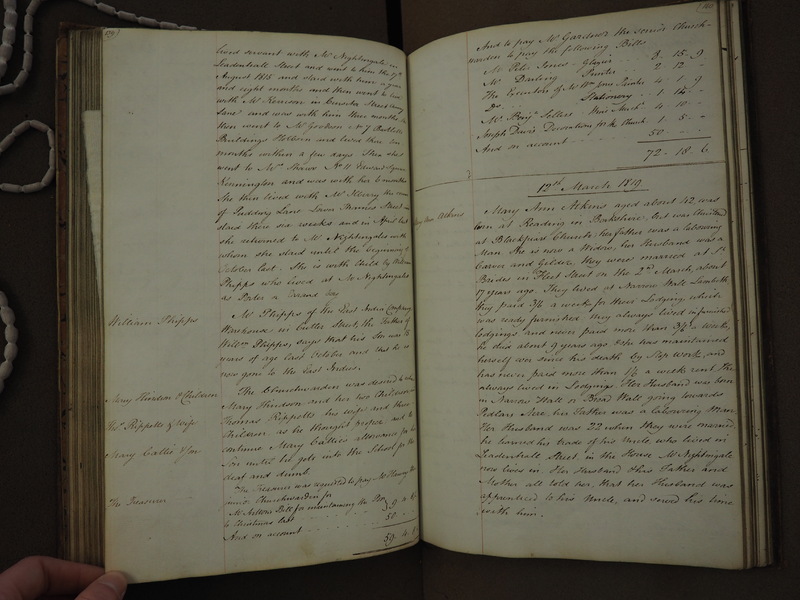 lived servant with Mr Nightingale in
Leadenhall Street and went to him the 17th
August 1815 and staid with him a year
and eight months and then went to live
with Mr in Street
and was with him three months
then went to Mr No 7
Buildings Holborn and lived there
months within a few days She then
went to Mr No 11 Edward Square
Kennington and was with her 6 months
She then lived with Mr Henry the corner
of Lane Lower Thames Street and
staid there six weeks and in April last
she returned to Mr Nightingales with
whom she staid until the beginning of
October last. She is with Child by William
Phipps who lived at Mr Nightingales
as Porter or Errand boy
William Phipps
Mr Phipps of the East India Company
Warehouse in Cutler Street, the Father of
Willm Phipps, says that his Son was 18
years of age last October and that he is
now gone to the East Indies.
Mary Hindson & Children
The Churchwarden was desired to
Mary Hindson and her two Children
Thos Rippells & Wife
Thomas Rippells his wife and three
Children, as he thought proper and to
Mary Cattie & Son
continue Mary Catties allowance for her
Son until he gets into the School for the
deaf and dumb.
The Treasurer
The Treasurer was requested to pay Mr
junior Churchwarden for
Mr Bill for maintaining the Poor
to Christmas last 9 4 6
And on account 50
59 4 6
And to pay Mr Gardner the senior Church-
warden to pay the following Bills
Mr Peter Jones - Glazier 8 15 9
Mr Darling Printer 2 12 -
The Executors of Mr Wm Jones Painter 4 1 9
Do Stationery 1 14 -
Mr Benjn Sellers Wine Mercht 4 10 -
Joseph Davis Decorations for the Church 1 5 -
And on account 50 - -
72 - 18 - 6
12th March 1819
Mary Ann Atkins
Mary Ann Atkins aged about 42 was
born at Reading in Berkshire, but was Christened
at Blackfriars Church; her father was a labouring
Man She is now a Widow, her Husband was a
Carver and Gilder, they were married at St
Brides in Fleet Street on the 2nd March, about
17 years ago. They lived at Narrow Wall Lambeth
they paid 3/6 a week for their Lodging which
was ready furnished They always lived in furnished
lodgings and never paid more than 3/6 a Week,
he died about 9 years ago She has maintained
herself ever since his death by Slop work, and
has never paid more than 1/6 a week rent She
always lived in Lodgings Her Husband was born
in Narrow Wall or Broad Wall going towards
Pedlars Acre, her Father was a labouring Man
Her Husband was 22 when they were married
he learned his trade of his Uncle, who lived in
Leadenhall Street in the House Mr Nightingale
now lives in. Her Husband & his Father and
Mother all told her, that her Husband was
apprenticed to his Uncle, and served his time
with him.